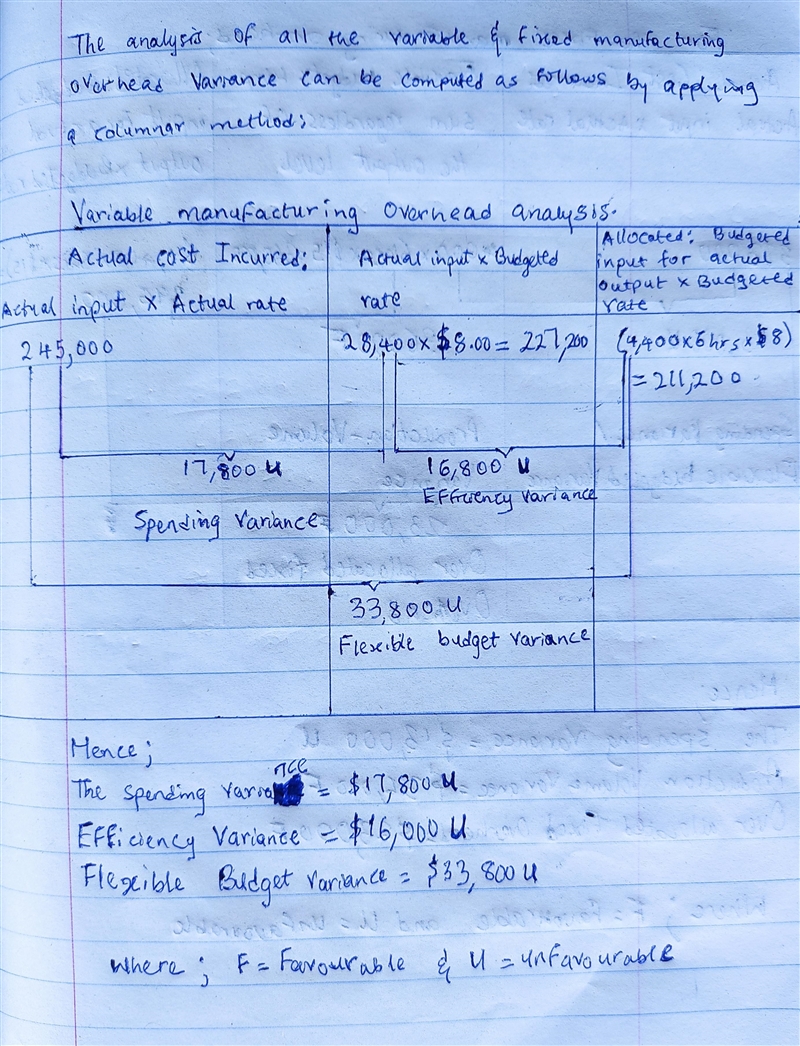 The analysis of all the variable & fixed manufacturing
overhead Variance can be computed as follows by applying
a columnar method;
Variable manufacturing Overhead analysis.
Actual cost Incurred:
Actual input x Actual rate
Actual input x Budgeted
rate
Allocated: Budgeted
input for actual
output x Budgeted
rate.
245,000
28,400 x $8.00 = 227,200
(4,400 x 6 hrs x $8)
= 211,200
17,800 U
Spending Variance
16,800 U
Efficiency Variance
33,800 U
Flexible budget variance
Hence;
The Spending Variance = $17,800 U
Efficiency Variance = $16,000 U
Flexible Budget Variance = $33,800 U
Where; F = Favourable & U = Unfavourable